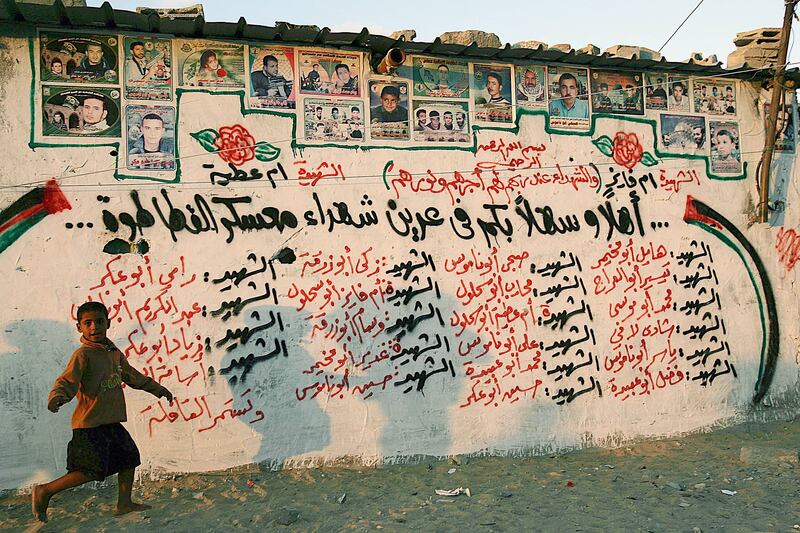 بسم الله الرحمن الرحيم
(والشهداء عند ربهم لهم أجرهم ونورهم)
الشهيدة ام فايز
الشهيدة ام عطية
... أهلاً وسهلاً بكم في عرين شهداء معسكر القطاطوة ...
الشهيد: هايل أبو خيمر
الشهيد: تيسير أبو العراج
الشهيد: محمد أبو موسى
الشهيد: شادي لافي
الشهيد: ياسر أبو ناموس
الشهيد: فضل أبو عبيدة
الشهيد: صبحي أبو ناموس
الشهيد: محارب أبو سحلول
الشهيدة: أم عطية أبو سحلول
الشهيد: علي أبو ناموس
الشهيد: محمد أبو عبيدة
الشهيد: حسين أبو عكر
الشهيد: زكي أبو زرقة
الشهيدة: أم فايز أبو سحلول
الشهيد: وسام أبو زرقة
الشهيدة: غدير أبو خيمر
الشهيد: حسين أبو ناموس
الشهيد: رامي أبو عكر
الشهيد: عبد الكريم أبو
الشهيد: زياد أبو عكر
الشهيد: أسامة
وتستمر القافلة